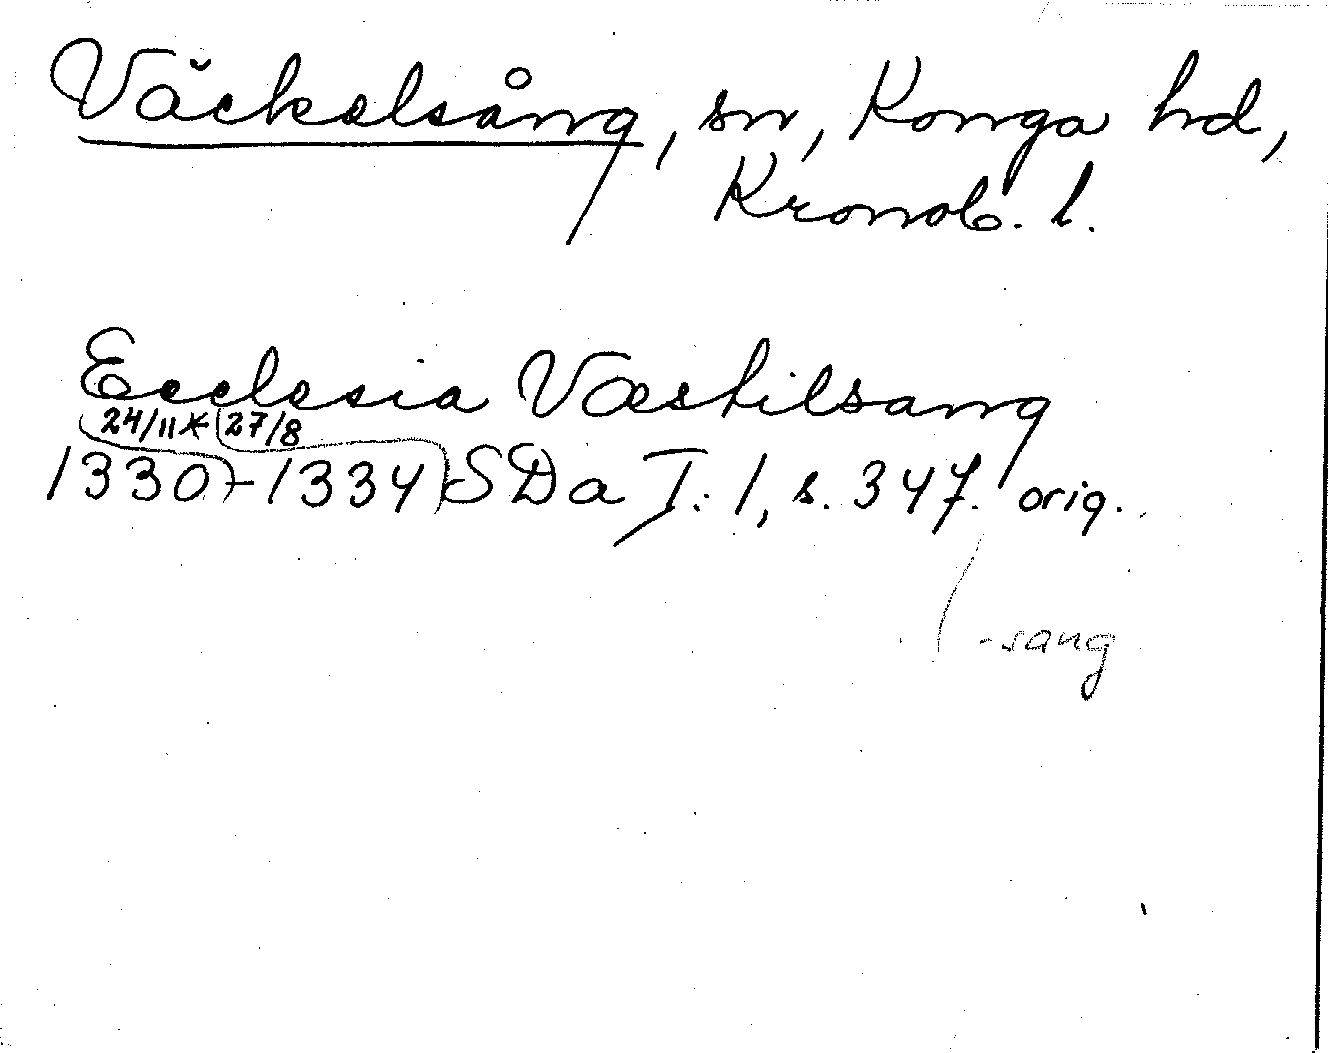 Väckelsång, sn, Konga hd,
Kronob. l.
Ecclesia Væskilsang
24/11* 27/8
1330-1334 SDa I:1, s. 347. orig.
-sang